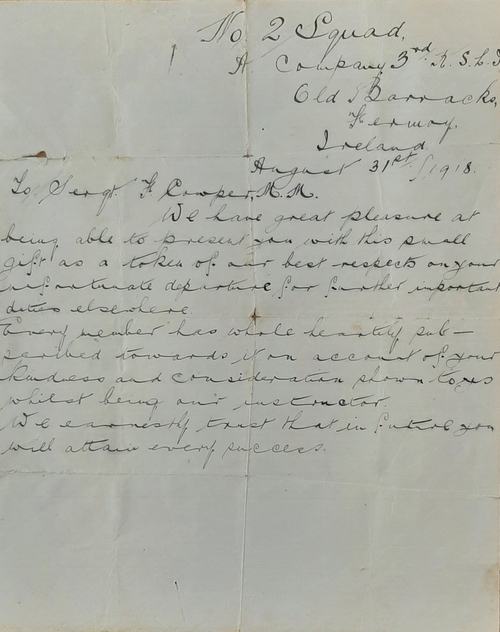 No 2 Squad,
A Company 3rd K. S. L. I
Old Barracks,
Fermoy.
Ireland
August 31st /1918.
To Sergt. F Cowper, M.M.
We have great pleasure at
being able to present you with this small
gift as a token of our best respects on your
unfortunate departure for further important
duties elsewhere.
Every member has whole heartily sub-
scribed towards it on account of your
kindness and consideration shown to us
whilst being our instructor.
We earnestly trust that in future you
will attain every success.